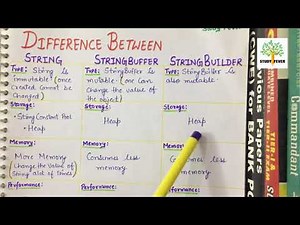 STUDY FEVER
DIFFERENCE BETWEEN
STRING
STRINGBUFFER
STRINGBUILDER
Type: String is
immutable (once
Created Cannot be
Changed)
Type: StringBuffer is
mutable (one Can
Change the value of
the object)
Type: StringBuilder is
also mutable
Storage:
• String Constant Pool
• Heap
Storage:
Heap
Storage:
Heap
Memory:
More Memory
(Change the Value of
String alot of times)
Memory:
Consumes less
memory
less
memory
Performance:
Performance:
Performance:
vious Papers
for BANK PO
TIER-I